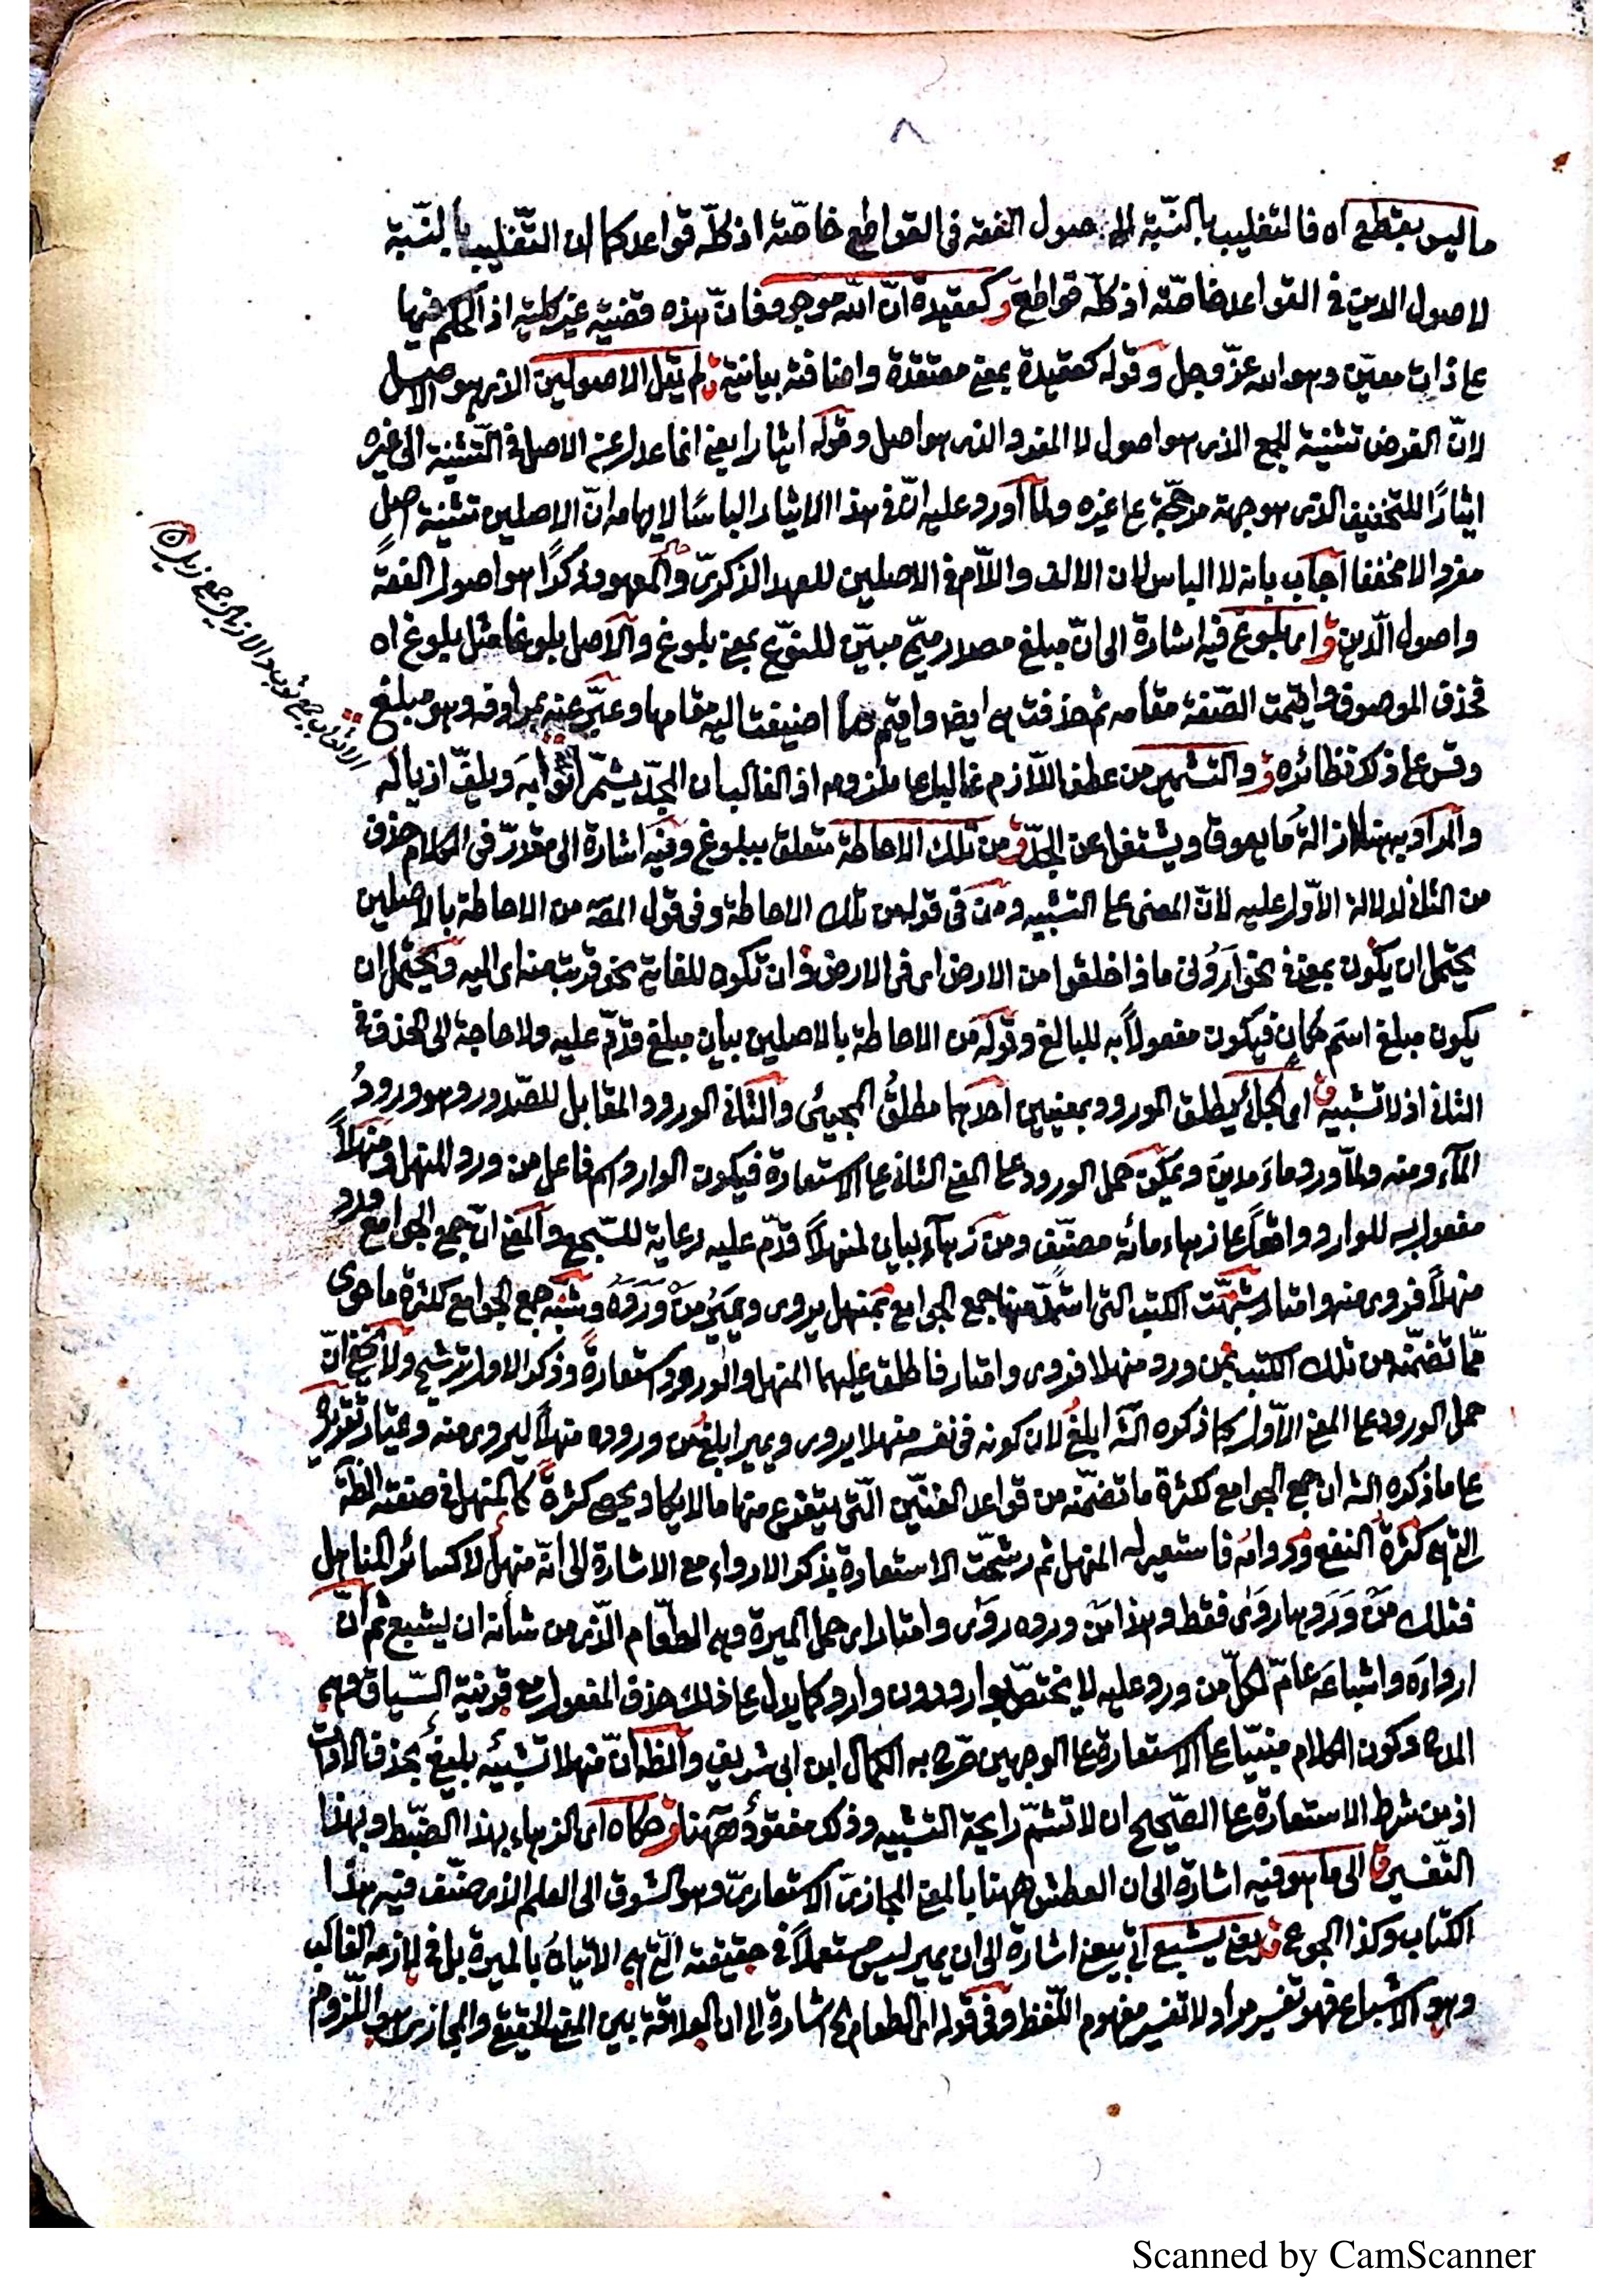 ٨
ما ليس بقطع اه فالتغليب بالنسبة الى اصول الفقه فى القواطع خاصّة اذ كلّه قواعد كما ان التغليب بالنسبة
لاصول الدين فى القواعد خاصّة اذ كلّه قواطع ق كعقيدة انّ اللّه موجود فانّ هذه قضيّة غير كلية اذ الحكم فيها
عا ذات معيّن وهو اللّه عزّ وجل وقوله كعقيدة بمعنى معتقدة واضافته بيانية ق لم يقل الاصولين الذى هو الاصل
لانّ الفرض تثنية الجمع الذى هو اصول لا المفرد الذى هو اصل وقوله ايثارا يعنى انما عدل عن الاصل فى التثنية الى غيره
ايثارًا للتخفيف الذى هو جهة مرجّحة عا غيره ولمّا اورد عليه انّ فى هذا الايثار الباسًا لايهامه انّ الاصلين تثنية اصلٍ
مفرد لا مخففا اجاب بانه لا الباس لان الالف واللاّم فى الاصلين للعهد الذكرىّ والمعهود ذكرًا هو اصول الفقه
واصول الدّين ق اى بلوغ فيه اشارة الى انّ مبلغ مصدر ميمىّ مبيّن للنوّع بمعنى بلوغ والاصل بلوغا مثل بلوغ اه
فحذف الموصوف واقيمت الصّفة مقامه ثم حذفت هى ايض واقيم ما اضيفت اليه مقامها وعبّر عنه بمرادفه وهو مبلغ
وقس عا ذلك نظائره ق والتشمير من عطف اللاّزم غالبا عا ملزومه اذ الغالب ان المجدّ يشمّر اثوابه ويلفّ اذياله
والمراد بهنا ازالة ما يعوق ويشتغل عن الجدّ ق من تلك الاحاطة متعلق ببلوغ وفيه اشارة الى مقدرّ فى الكلام حذف
من الثانى لدلالة الاوّل عليه لانّ المعنى عا التشبيه ومن فى قوله من تلك الاحاطة وفى قول المصّ من الاحاطة بالاصلين
يحتمل ان يكون بمعنى فى نحو اَرُونى ماذا خلقوا من الارض اى فى الارض وان تكون للغاية نحو قربت منه اى اليه ويحتمل ان
يكون مبلغ اسم مكان فيكون مفعولاً به للبالغ وقوله من الاحاطة بالاصلين بيان مبلغ قدّم عليه ولا حاجة الى الحذف فى
الثانى اذ لا تشبيه ق اى الجائى يطلق الورود بمعنيين احدهما مطلقُ المجيئى والثانى الورود المقابل للصّدور وهو ورودُ
المآء ومنه ولمّا ورد ماء مدين ويمكن حمل الورود عا المعنى الثانى عا الاستعارة فيكون الوارد اسم فاعل من ورد المنهل ومنهلاً
مفعول به للوارد واقعًا عا زهاء مائة مصنّف ومن زهآء بيانٍ لمنهلاً قدّم عليه رعاية للسّجع والمعنى انّ جمع الجوامع ورد
منهلاً فروى منه وامتار شبّهت الكتب التى استمدّ منها جمع الجوامع بمنهل يروى ويمير من وَرَدَهُ وشبّه جمع الجوامع لكثرة ما حوى
ممّا تضمّنه من تلك الكتب بمن ورد منهلا فروى وامتار فاطلق عليهما المنهل والوارد استعارةً وذكر الاول ترشيح ولا يخفى انّ
حمل الورود عا المعنى الاوّل كما ذكره الشّه ابلغُ لان كونه فى نفسه منهلا يروى ويمير ابلغ من وروده منهلاً ليروى منه وعبّار تقريره
عا ما ذكره الشه ان جمع الجوامع لكثرة ما تضمّنه من قواعد الفنّين الّتى يتفرع منها ما لا يكاد يحصى كثرةً كالمنهل فى صفته الظه
التى هى كثرة النفع ودوامُه فاستعير له المنهل ثم رشّحت الاستعارة بذكر الارواء مع الاشارة الى انّه منهل لا كسائر المناهل
فتلك من وَرَدها رَوَى فقط وهذا من ورده رَوَى وامتار اى حمل الميرة وهى الطعّام الّذى من شأنه ان يشبع ثم انّ
ارواءَه واشباعَه عامّ لكلّ من ورد عليه لا يختصّ بوارد دون وارد كما يدل عا ذلك حذف المفعول مع قرينة السّياق وهى
المدح وكون الكلام مبنيّا عا الاستعارة عا الوجهين صرّح به الكمال ابن ابى شريف والظه انّ منهلا تشبيه بليغ بحذف الادات
اذ من شرط الاستعارة عا الصّحيح ان لا تشمّ رايحة التشبيه وذلك مفقودٌ ههنا ق حكاه اى الزهاء بهذا الضبّط وبهذا
التفسير ق الى ما هو فيه اشارة الى ان العطش ههنا بالمعنى المجازىّ الاستعارىّ وهو الشوق الى العلم الذى صنّف فيه هذا
الكتاب وكذا الجوع ق يعنى يشبع اتى بيعنى اشارة الى ان يمير ليس مستعملاً فى حقيقته الّتى هى الاتيانُ بالميرة بل فى لازمه الغالب
وهو الاشباع فهو تفسير مراد لا تفسير مفهوم اللّفظ وفى قوله اى الطعام الخ اشارة الى ان العلاقة بين المعنى الحقيقى والمجازى هو اللّزوم
Scanned by CamScanner